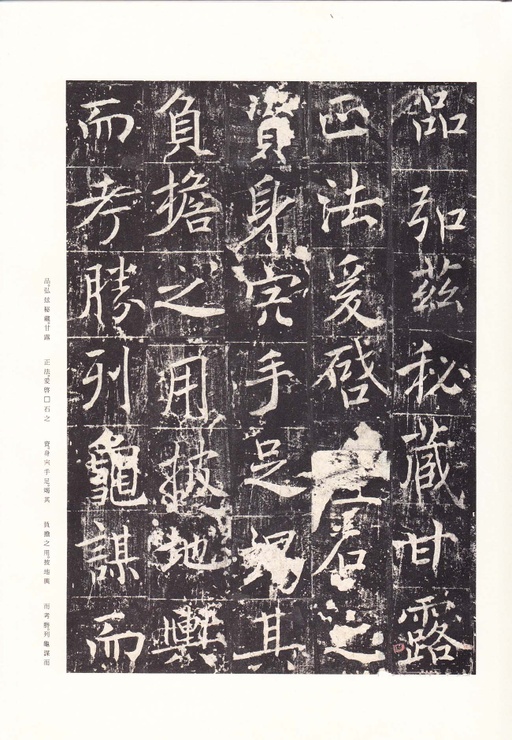 品弘茲秘藏甘露
正法爰啓石之
資身宍手足竭其
負擔之用披地轝
而考勝列龜謀而
品弘茲秘藏甘露　正法爰啓□石之　資身宍手足竭其　負擔之用披地輿　而考勝列龜謀而